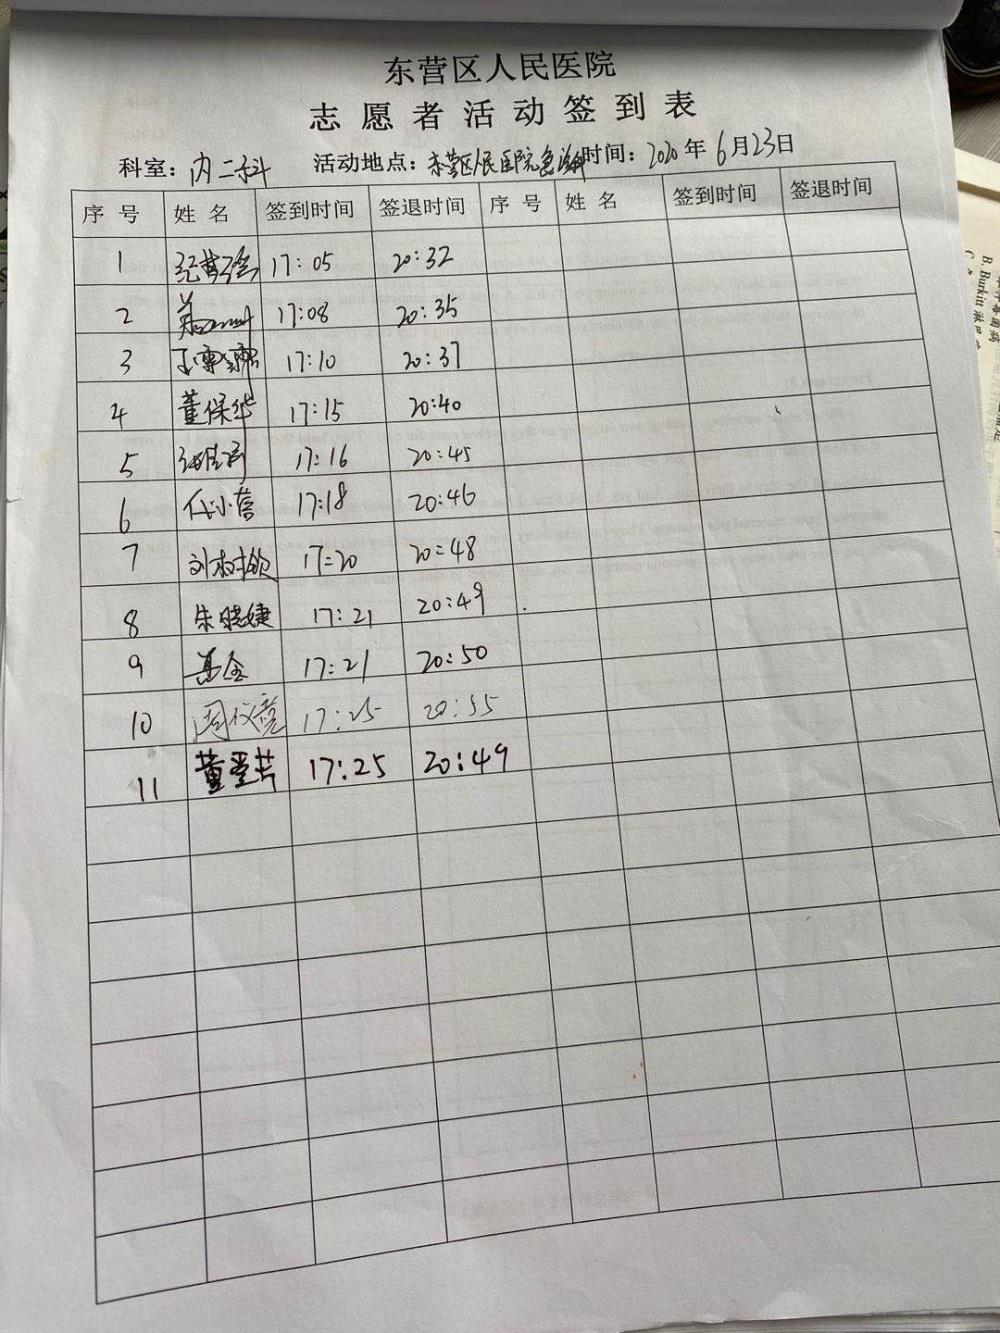 东营区人民医院
志愿者活动签到表
科室：内二科 活动地点：东营区人民医院急诊 时间：2020年6月23日
序号 姓名 签到时间 签退时间 序号 姓名 签到时间 签退时间
1 17:05 20:32
2 17:08 20:35
3 17:10 20:37
4 董保华 17:15 20:40
5 17:16 20:45
6 代小营 17:18 20:46
7 17:20 20:48
8 朱晓婕 17:21 20:49
9 17:21 20:50
10 17:25 20:55
11 17:25 20:49
B. Burkitt